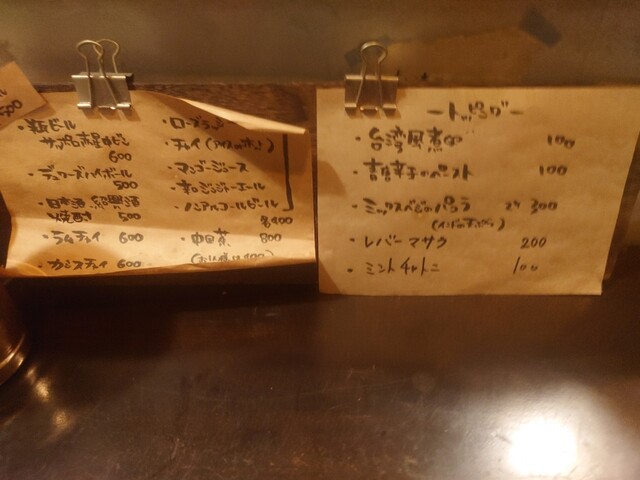 500
・瓶ビール
サッポロ赤星中ビン
600
・デュワーズハイボール
500
・日本酒 紹興酒
焼酎 500
・ラムチャイ 600
・カシスチャイ 600
・チャイ(アイス or ホット)
・マンゴージュース
・辛口ジンジャーエール
・ノンアルコールビール
各400
・中国茶 800
ートッピングー
・台湾風煮卵 100
・青唐辛子のペースト 100
・ミックスベジのパコラ 2ケ 300
(インドの天ぷら)
・レバーマサラ 200
・ミントチャトニ 100